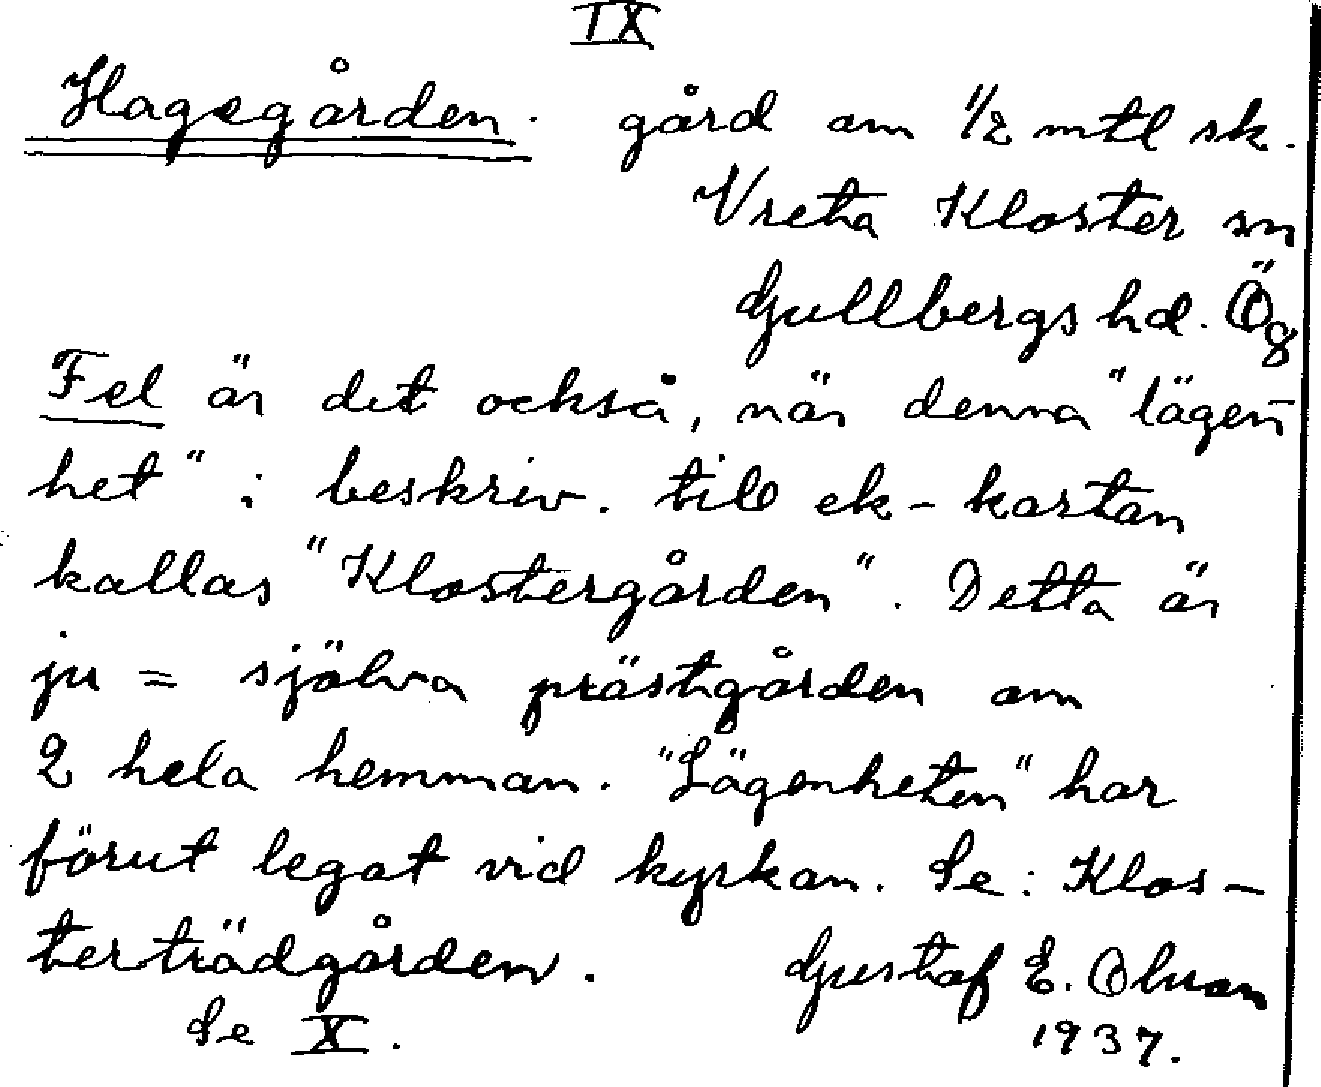 IX
Hagsgården. gård om 1/2 mtl sk.
Vreta Kloster sn
Gullbergs hd. Ög
Fel är det också, när denna "lägen-
het" i beskriv. till ek-kartan
kallas "Klostergården". Detta är
ju = själva prästgården om
2 hela hemman. "Lägenheten" har
förut legat vid kyrkan. Se: Klos-
terträdgården. Gustaf E. Olsson
Se X. 1937.